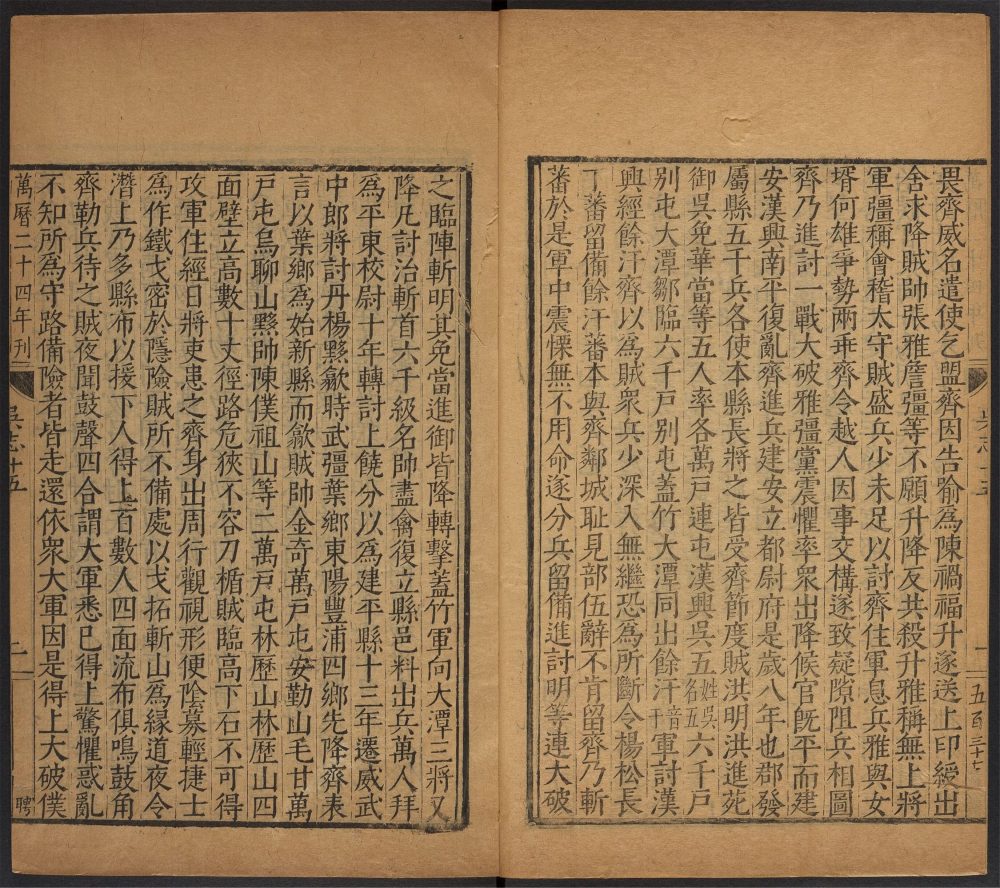 畏齊威名遣使乞盟齊因告喻為陳禍福升遂送上印綬出
舍求降賊帥張雅詹彊等不願升降反共殺升雅稱無上將
軍彊稱會稽太守賊盛兵少未足以討齊住軍息兵雅與女
壻何雄爭勢兩乖齊令越人因事交構遂致疑隙阻兵相圖
齊乃進討一戰大破雅彊黨震懼率衆出降候官旣平而建
安漢興南平復亂齊進兵建安立都尉府是歲八年也郡發
屬縣五千兵各使本縣長將之皆受齊節度賊洪明洪進苑
御吳免華當等五人率各萬戸連屯漢興吳五姓吳名五六千戸
別屯大潭鄒臨六千戸別屯蓋竹大潭同出餘汗音干軍討漢
興經餘汗齊以為賊衆兵少深入無繼恐為所斷令楊松長
丁蕃留備餘汗蕃本與齊鄰城耻見部伍辭不肯留齊乃斬
蕃於是軍中震慄無不用命遂分兵留備進討明等連大破
一
五百三十七
之臨陣斬明其免當進御皆降轉擊蓋竹軍向大潭三將又
降凡討治斬首六千級名帥盡禽復立縣邑料出兵萬人拜
為平東校尉十年轉討上饒分以為建平縣十三年遷威武
中郎將討丹楊黟歙時武彊葉鄉東陽豐浦四鄉先降齊表
言以葉鄉為始新縣而歙賊帥金奇萬戸屯安勤山毛甘萬
戸屯烏聊山黟帥陳僕祖山等二萬戸屯林歷山林歷山四
面壁立高數十丈徑路危狹不容刀楯賊臨高下石不可得
攻軍住經日將吏患之齊身出周行觀視形便陰募輕捷士
為作鐵戈密於隱險賊所不備處以戈拓斬山為緣道夜令
潛上乃多縣布以援下人得上百數人四面流布俱鳴鼓角
齊勒兵待之賊夜聞鼓聲四合謂大軍悉已得上驚懼惑亂
不知所為守路備險者皆走還依衆大軍因是得上大破僕
萬曆二十四年刊
吳志十五
二